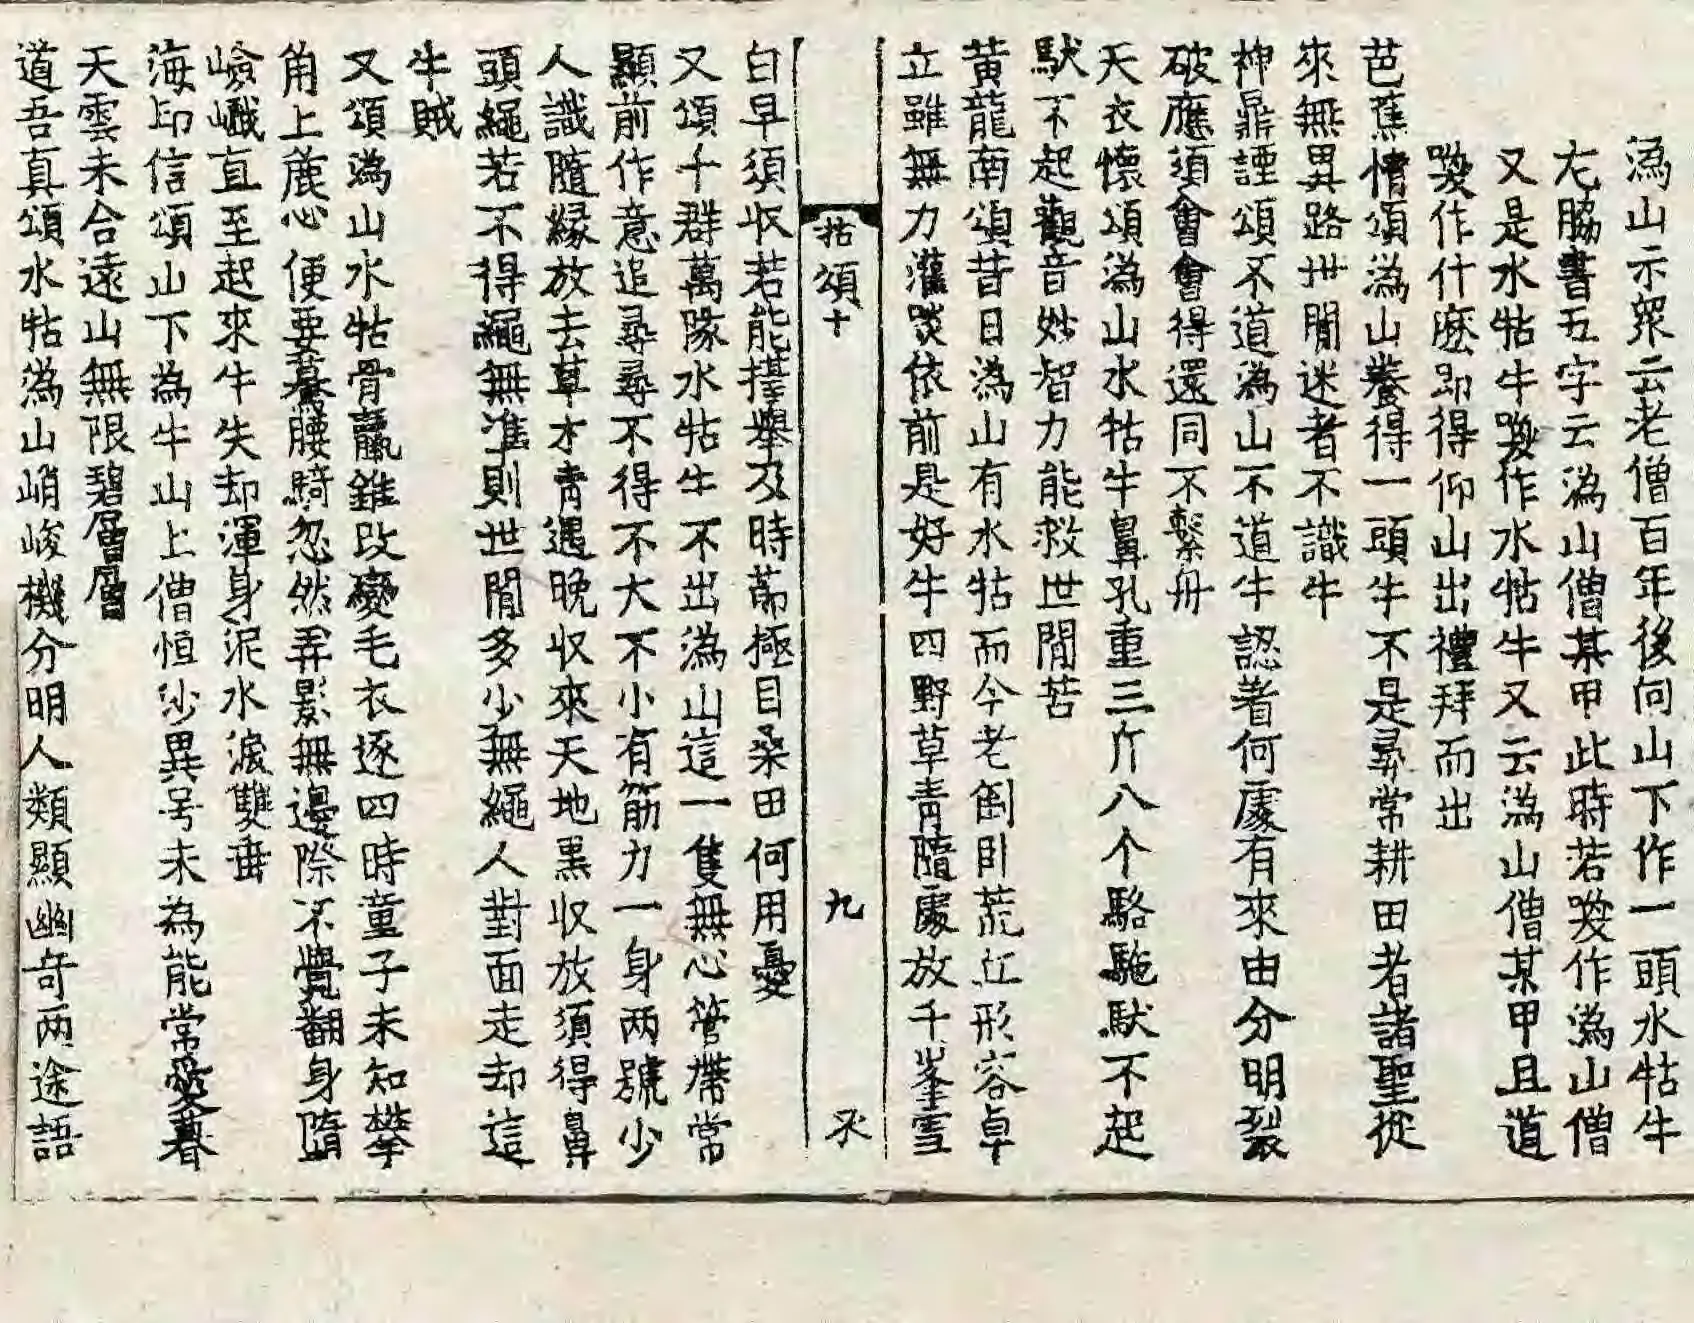 溈山示眾云老僧百年後向山下作一頭水牯牛
左脇書五字云溈山僧某甲此時若喚作溈山僧
又是水牯牛喚作水牯牛又云溈山僧某甲且道
喚作什麽即得仰山出禮拜而出
芭蕉情頌溈山養得一頭牛不是尋常耕田者諸聖從
來無異路世間迷者不識牛
神鼎諲頌不道溈山不道牛認著何處有來由分明裂
破應須會會得還同不繫舟
天衣懷頌溈山水牯牛鼻孔重三斤八个駱駞馱不起
馱不起觀音妙智力能救世間苦
黃龍南頌昔日溈山有水牯而今老倒臥荒丘形容卓
立雖無力灌啖依前是好牛四野草青隨處放千峯雪
拈頌十 九 永
白早須收若能擡舉及時節極目桑田何用憂
又頌千群萬隊水牯牛不出溈山這一隻無心管帶常
顯前作意追尋尋不得不大不小有筋力一身两號少
人識隨緣放去草才青遇晚収來天地黑収放須得鼻
頭繩若不得繩無準則世間多少無繩人對面走却這
牛賊
又頌溈山水牯骨羸錐改變毛衣逐四時童子未知攀
角上麁心便要驀腰騎忽然弄影無邊際不覺翻身墮
嶮巇直至起來牛失却渾身泥水淚雙垂
海印信頌山下為牛山上僧恒沙異号未為能常愛暮
天雲未合遠山無限碧層層
道吾真頌水牯溈山峭峻機分明人類顯幽奇两途語